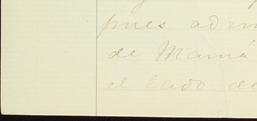 pues adem
de Mamá
el lado de